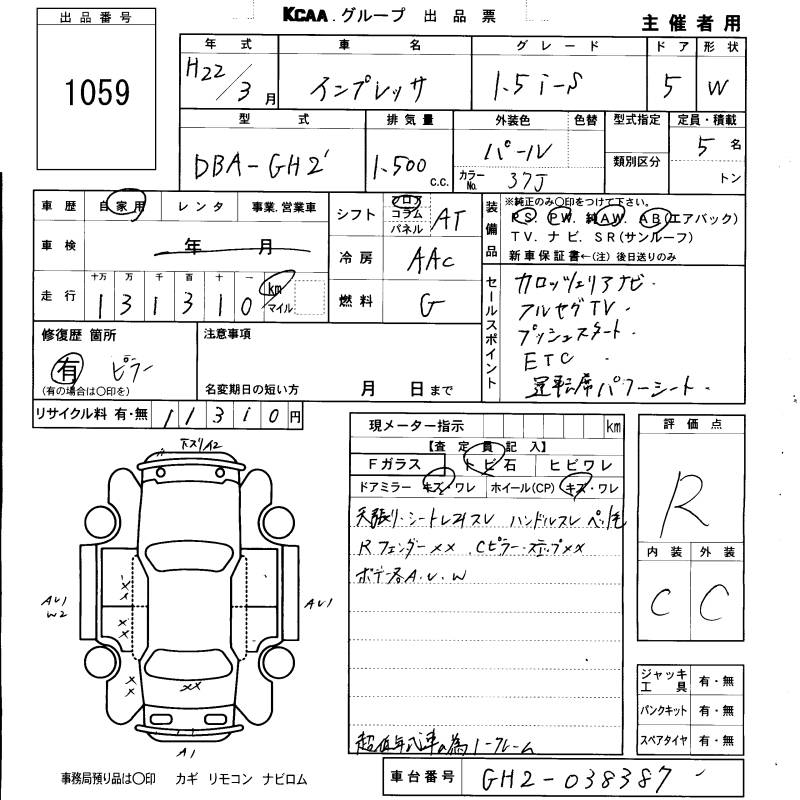 KCAA.グループ 出品票
主催者用
出品番号
1059
年式 車名 グレード ドア 形状
H22/3月 インプレッサ 1.5i-S 5 W
型式 排気量 外装色 色替 型式指定 定員・積載
DBA-GH2 1.500 c.c. パール 類別区分 5名
カラーNo. 37J トン
車歴 自家用 レンタ 事業.営業車
車検 年 月
走行 十万 万 千 百 十 一
131310 km マイル
シフト フロア コラム パネル AT
冷房 AAC
燃料 G
装備品
※純正のみ○印をつけて下さい。
PS. PW. 純AW. AB(エアバック)
TV. ナビ. SR(サンルーフ)
新車保証書←(注)後日送りのみ
セールスポイント
カロッツェリアナビ・
フルセグTV・
プッシュスタート・
ETC・
運転席パワーシート・
修復歴 箇所
有 ピラー
(有の場合は○印を)
注意事項
名変期日の短い方 月 日まで
リサイクル料 有・無 11310円
現メーター指示 km
【査定員記入】
Fガラス トビ石 ヒビワレ
ドアミラー キズ・ワレ ホイール(CP) キズ・ワレ
天張り・シートレスレ ハンドルスレ ペット毛
RフェンダーXX .Cピラー・ステップXX
ボデー各A.U.W
超低年式車の為ノークレーム
評価点
R
内装 外装
C C
下ズリA2
AU1
W2
AU1
XX
A1
ジャッキ工具 有・無
パンクキット 有・無
スペアタイヤ 有・無
事務局預り品は○印 カギ リモコン ナビロム
車台番号 GH2-038387